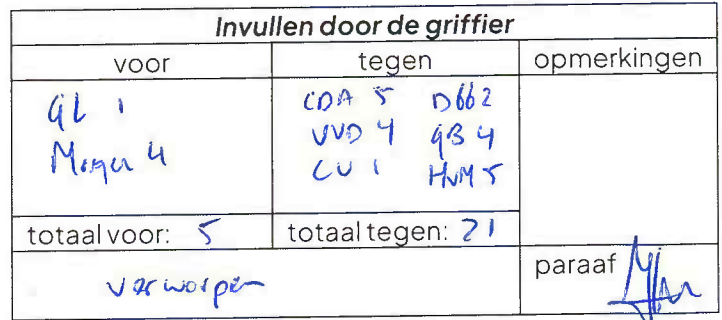 Invullen door de griffier
voor tegen opmerkingen
GL 1 CDA 5 D66 2
Morgen 4 VVD 4 GB 4
CU 1 HvM 5
totaal voor: 5 totaal tegen: 21
verworpen paraaf